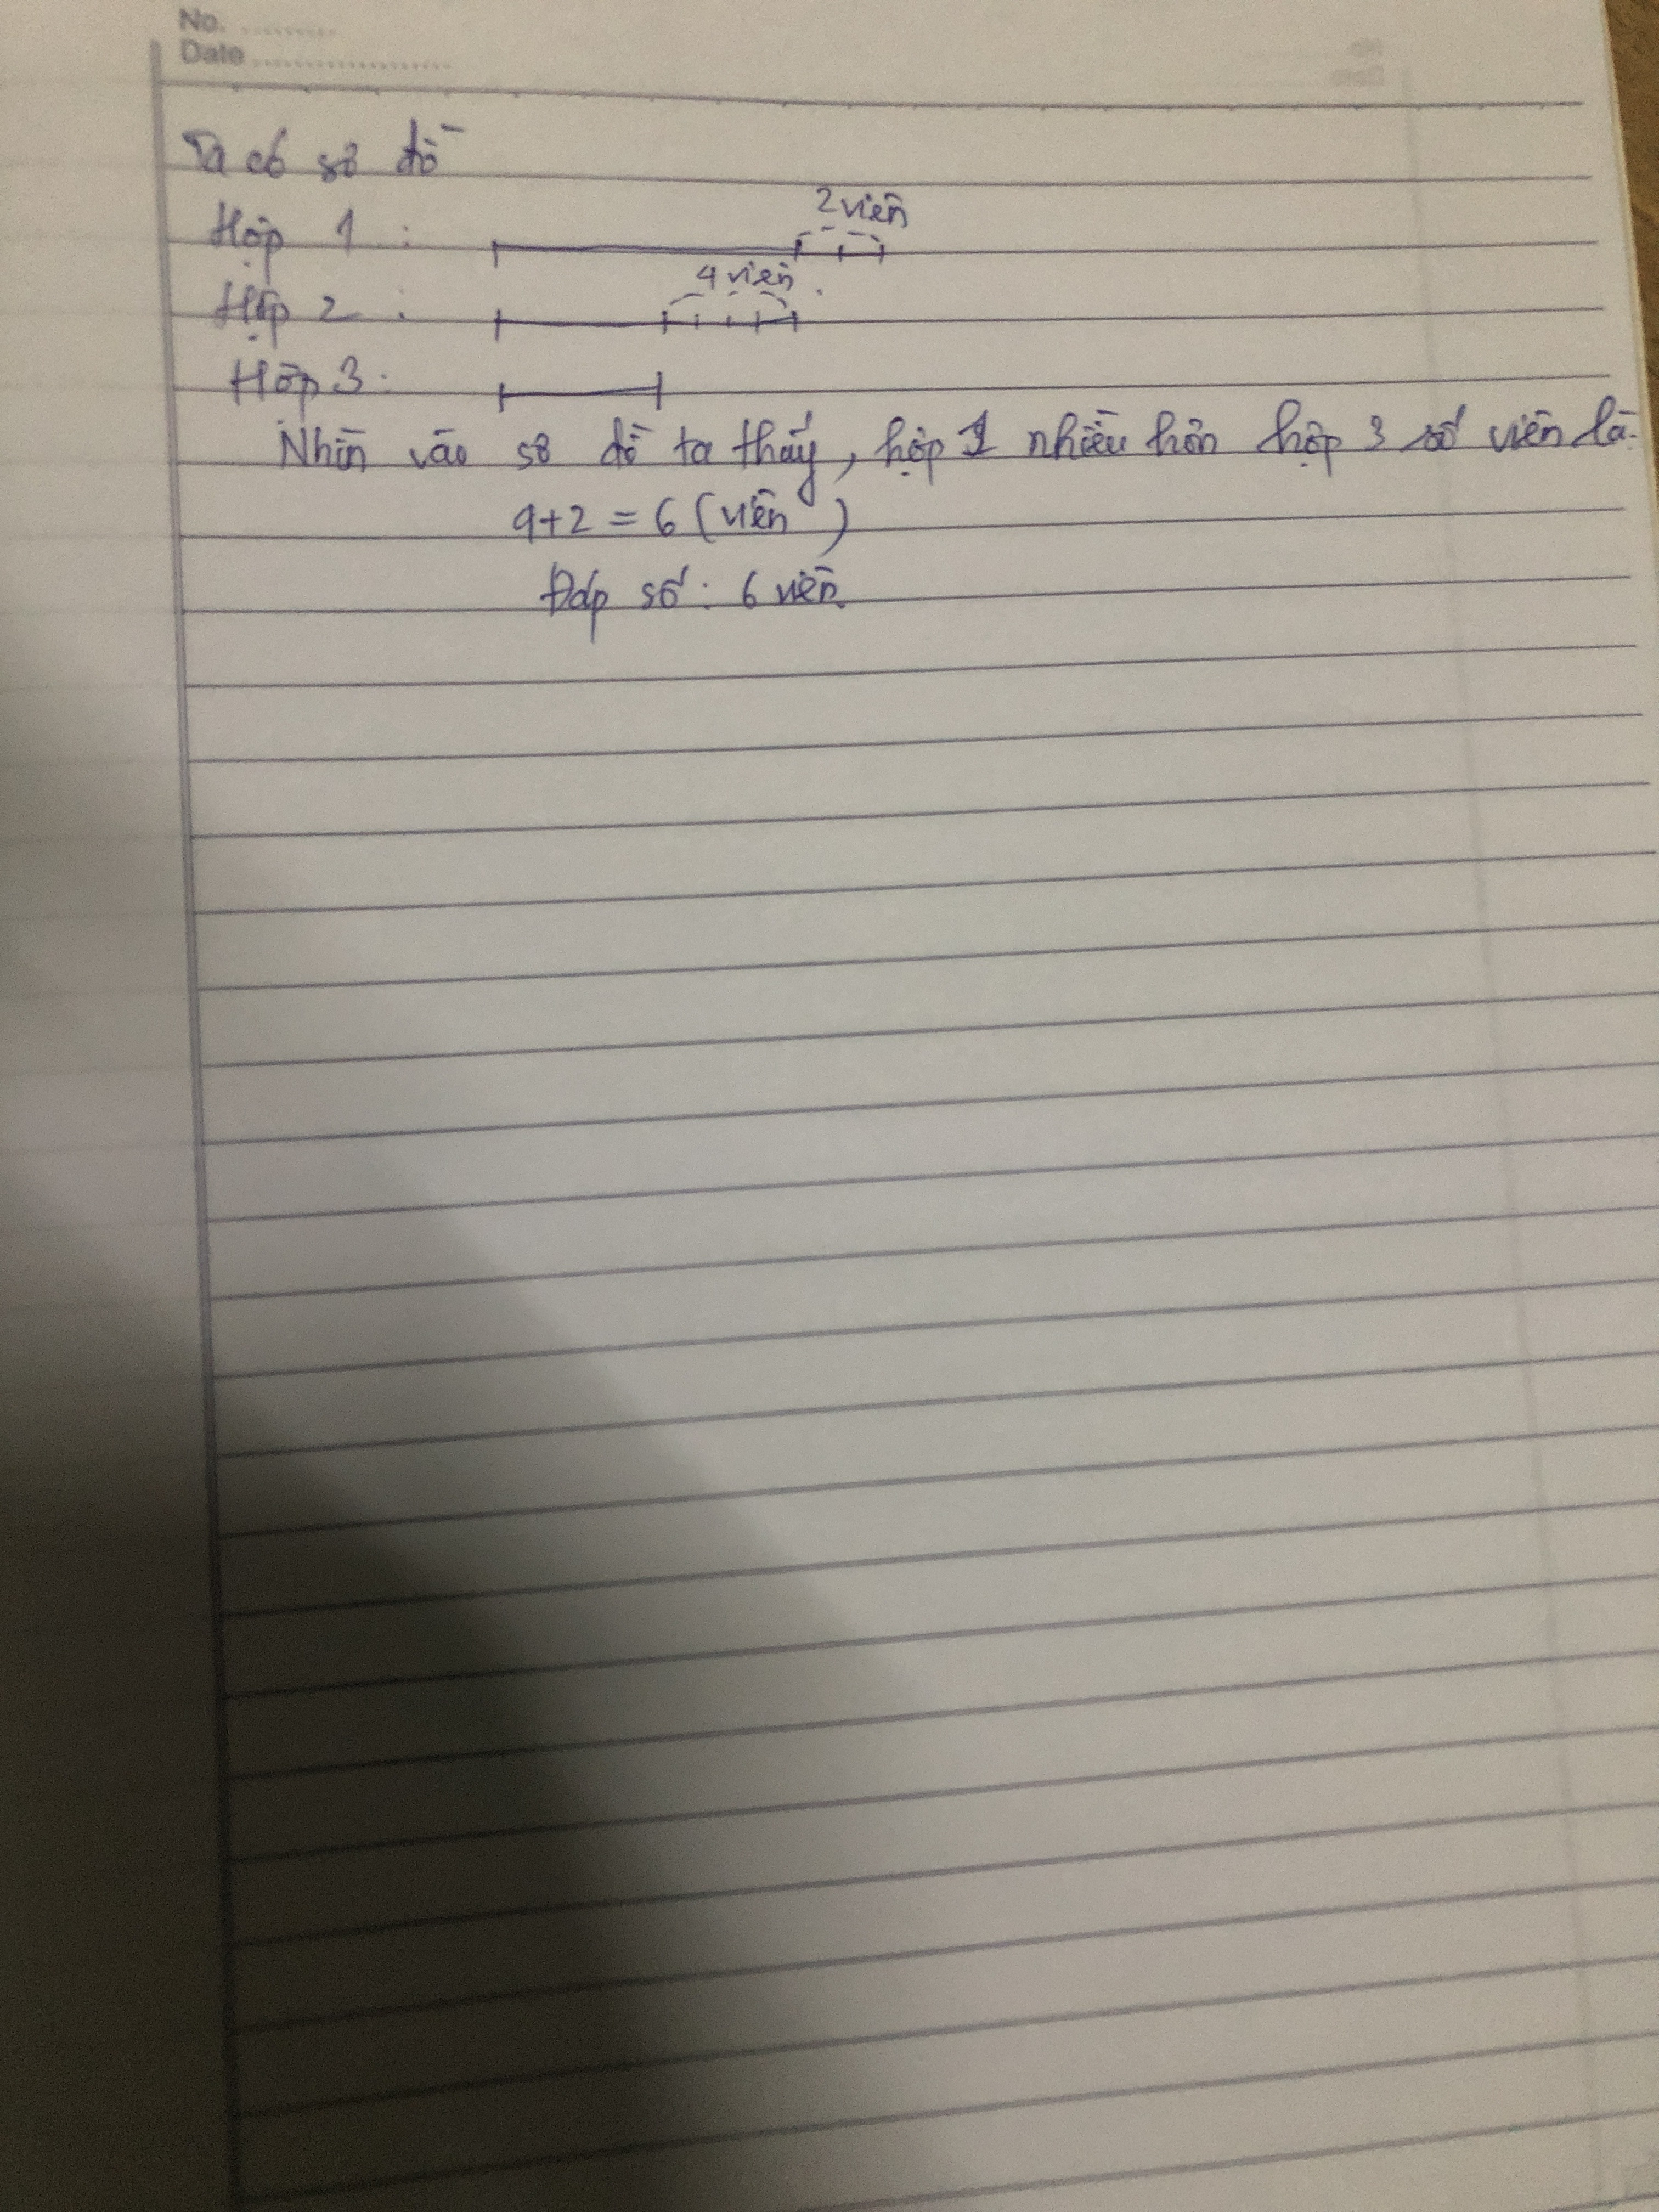 No. .........
Date ....................
Ta có sơ đồ
2 viên
Hộp 1 :
4 viên
Hộp 2 :
Hộp 3 :
Nhìn vào sơ đồ ta thấy, hộp 1 nhiều hơn hộp 3 số viên là:
4+2 = 6 (viên)
Đáp số: 6 viên.